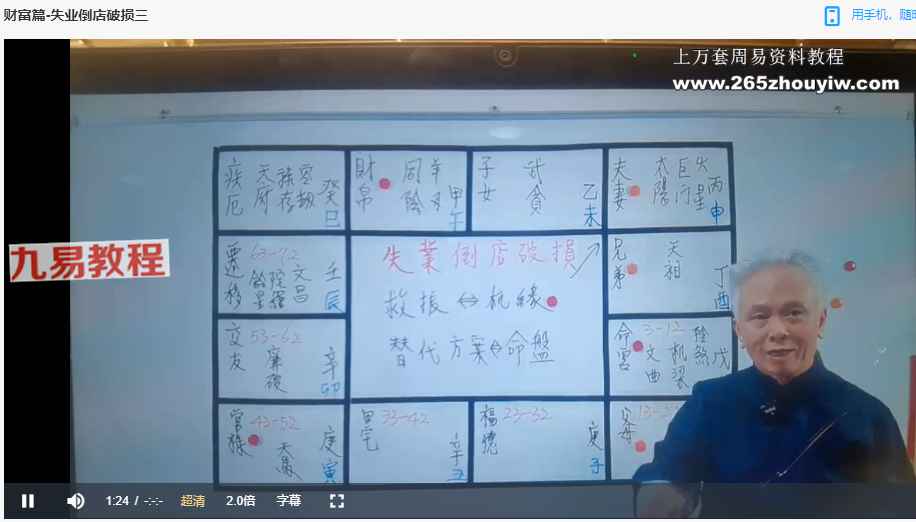 财富篇-失业倒店破损三
用手机、随时
上万套周易资料教程
www.265zhouyiw.com
九易教程
疾厄
天府
癸巳
財帛
同陰
甲午
子女
武貪
乙未
夫妻
太陽
巨門
火星
丙申
遷移
63-72
鈴星
陀羅
文昌
壬辰
失業倒店破損
救援⇔机緣
替代方案⇔命盤
兄弟
天相
丁酉
交友
53-62
廉破
辛卯
命宮
3-12
文曲
机梁
陰煞
戊
官祿
43-52
庚寅
田宅
33-42
辛丑
福德
23-32
庚子
父母
1:24 / -:-
超清
2.0倍
字幕